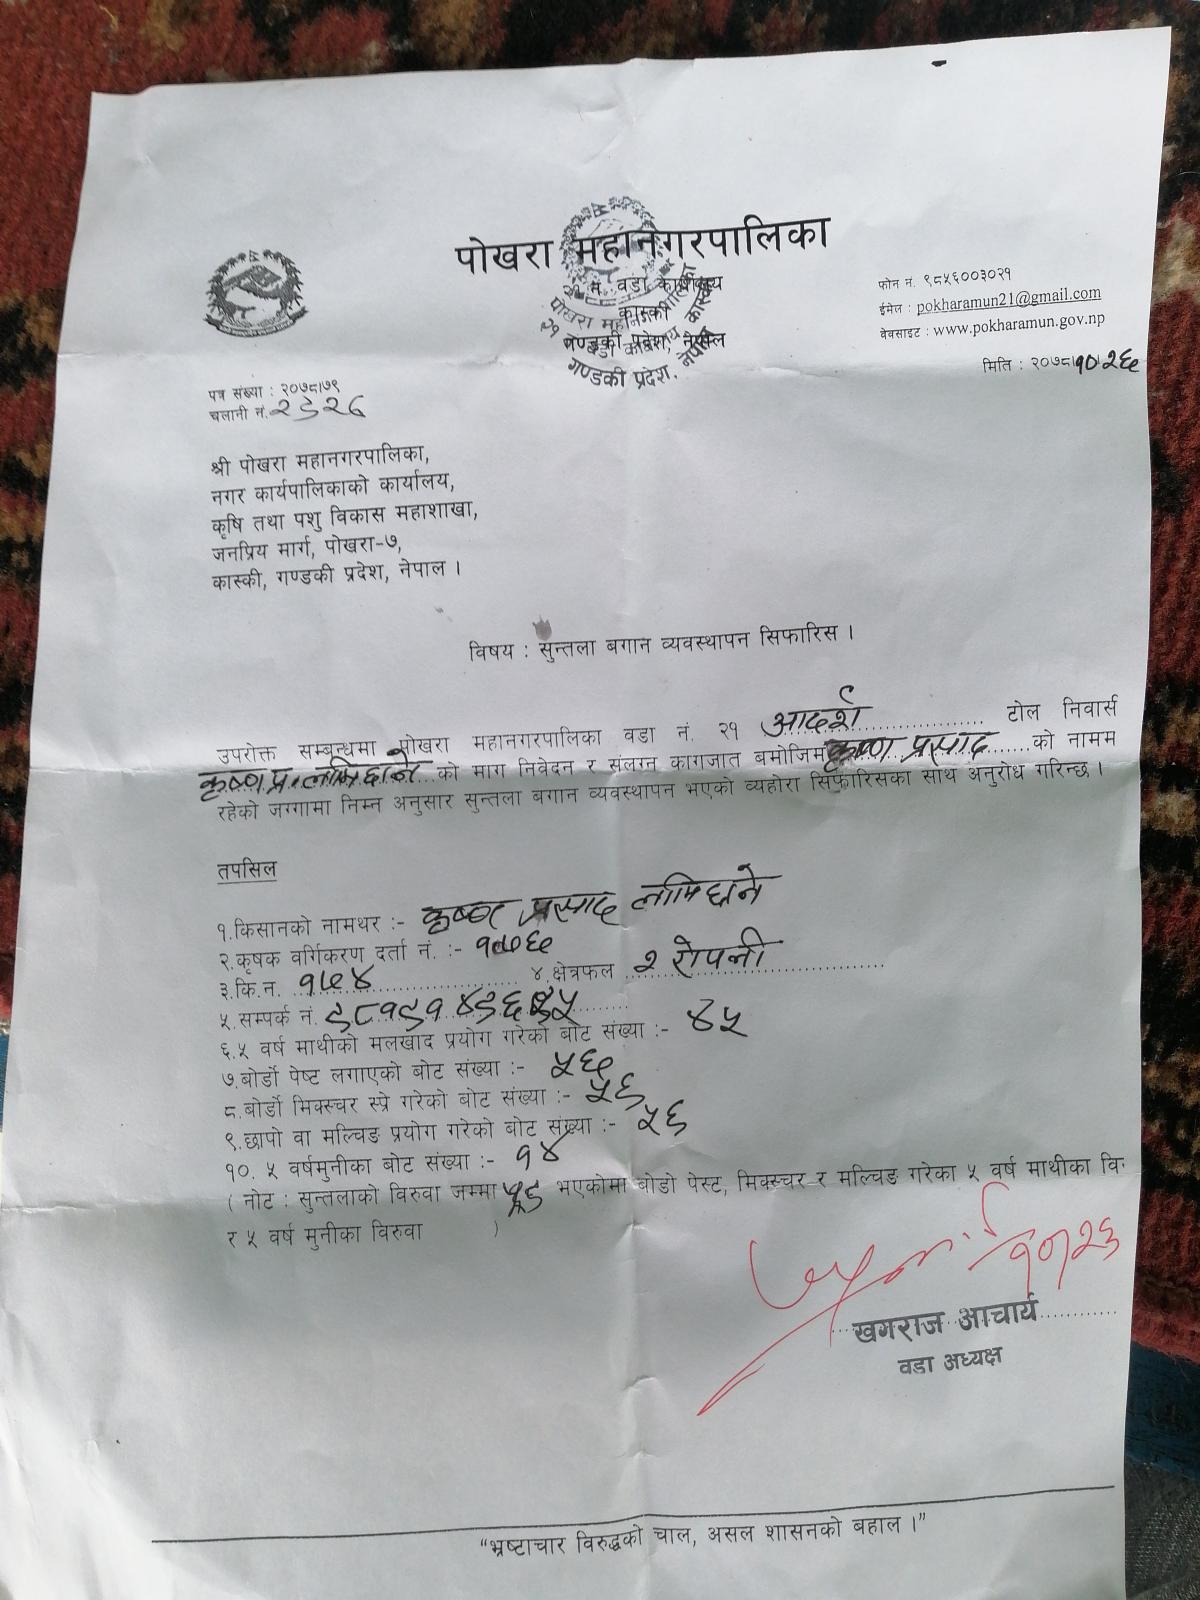 पोखरा महानगरपालिका
२१ नं. वडा कार्यालय
कास्की
गण्डकी प्रदेश, नेपाल
गण्डकी प्रदेश, नेपाल
फोन नं. ९८५६००३०२१
ईमेल : pokharamun21@gmail.com
वेबसाइट : www.pokharamun.gov.np
मिति : २०७८।१०।२६
पत्र संख्या : २०७८।७९
चलानी नं.
श्री पोखरा महानगरपालिका,
नगर कार्यपालिकाको कार्यालय,
कृषि तथा पशु विकास महाशाखा,
जनप्रिय मार्ग, पोखरा-७,
कास्की, गण्डकी प्रदेश, नेपाल ।
विषय : सुन्तला बगान व्यवस्थापन सिफारिस ।
उपरोक्त सम्बन्धमा पोखरा महानगरपालिका वडा नं. २१ आदर्श टोल निवासी
कृष्ण प्र. लामिछाने को माग निवेदन र संलग्न कागजात बमोजिम कृष्ण प्रसाद को नाममा
रहेको जग्गामा निम्न अनुसार सुन्तला बगान व्यवस्थापन भएको व्यहोरा सिफारिसका साथ अनुरोध गरिन्छ ।
तपसिल
१.किसानको नामथर :- कृष्ण प्रसाद लामिछाने
२.कृषक वर्गिकरण दर्ता नं. :- १७७६
३.कि.न. १७४ ४.क्षेत्रफल २ रोपनी
५.सम्पर्क नं.
६.५ वर्ष माथीको मलखाद प्रयोग गरेको बोट संख्या :- ४५
७.बोर्डो पेष्ट लगाएको बोट संख्या :- ५६
८.बोर्डो मिक्स्चर स्प्रे गरेको बोट संख्या :- ५६
९.छापो वा मल्चिङ प्रयोग गरेको बोट संख्या :- ५६
१०. ५ वर्षमुनीका बोट संख्या :- १४
( नोट : सुन्तलाको विरुवा जम्मा भएकोमा बोडो पेस्ट, मिक्स्चर र मल्चिङ गरेका ५ वर्ष माथीका वि
र ५ वर्ष मुनीका विरुवा )
१०।२६
खगराज आचार्य
वडा अध्यक्ष
“भ्रष्टाचार विरुद्धको चाल, असल शासनको बहाल ।”